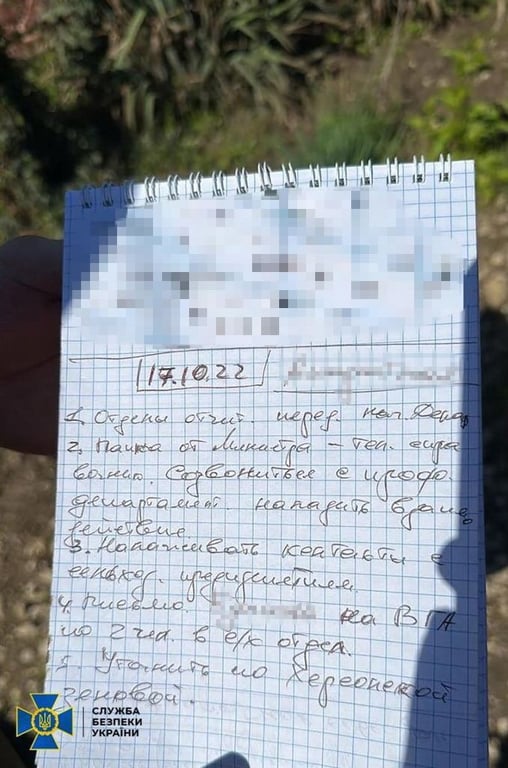 17.10.22
1. Отделы отчит. перед. нач. Депар
2. Папка от Министра – теп.
важно. Созвониться с профс.
департамент. наладить взаимо
действие
3. Налаживать контакты с
сельхоз. предприятием.
4. Письмо на ВГА
по 2 чел. в с/х отдел.
5. Уточнить по Херсонской
зерновой.
СЛУЖБА
БЕЗПЕКИ
УКРАЇНИ